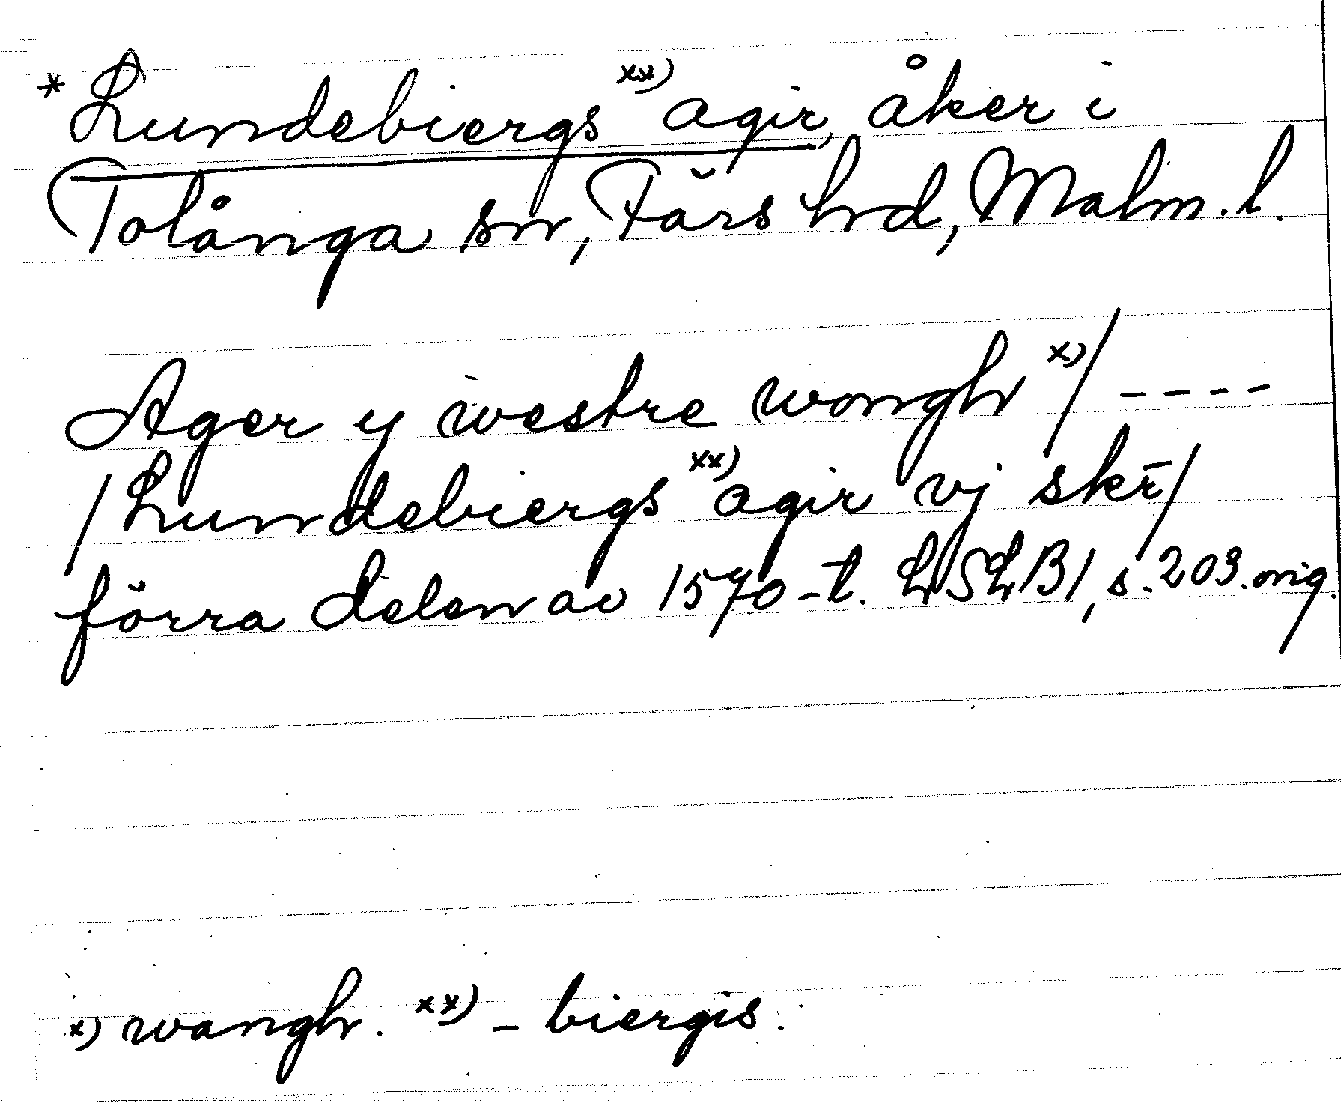 *Lundebiergs xx) agir, åker i
Tolånga sn, Färs hd, Malm. l.
Ager y westre wongh x)/ ----
/Lundebiergs xx) agir vj skr̄/
förra delen av 1570-t. LSLB1, s. 203. orig.
x) wangh. xx) - biergis.